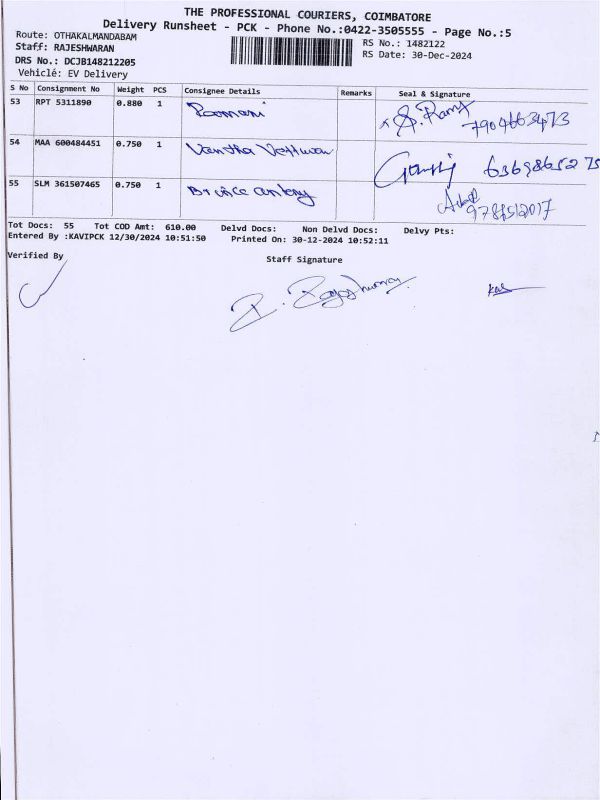 THE PROFESSIONAL COURIERS, COIMBATORE
Delivery Runsheet - PCK - Phone No.:0422-3505555 - Page No.:5
Route: OTHAKALMANDABAM
Staff: RAJESHWARAN
DRS No.: DCJB148212205
Vehicle: EV Delivery
RS No.: 1482122
RS Date: 30-Dec-2024
S No Consignment No Weight PCS Consignee Details Remarks Seal & Signature
53 RPT 5311890 0.880 1 Ramani S. Ramya 7904663473
54 MAA 600484451 0.750 1 6369865275
55 SLM 361507465 0.750 1 9781512017
Tot Docs: 55 Tot COD Amt: 610.00 Delvd Docs: Non Delvd Docs: Delvy Pts:
Entered By :KAVIPCK 12/30/2024 10:51:50 Printed On: 30-12-2024 10:52:11
Verified By Staff Signature